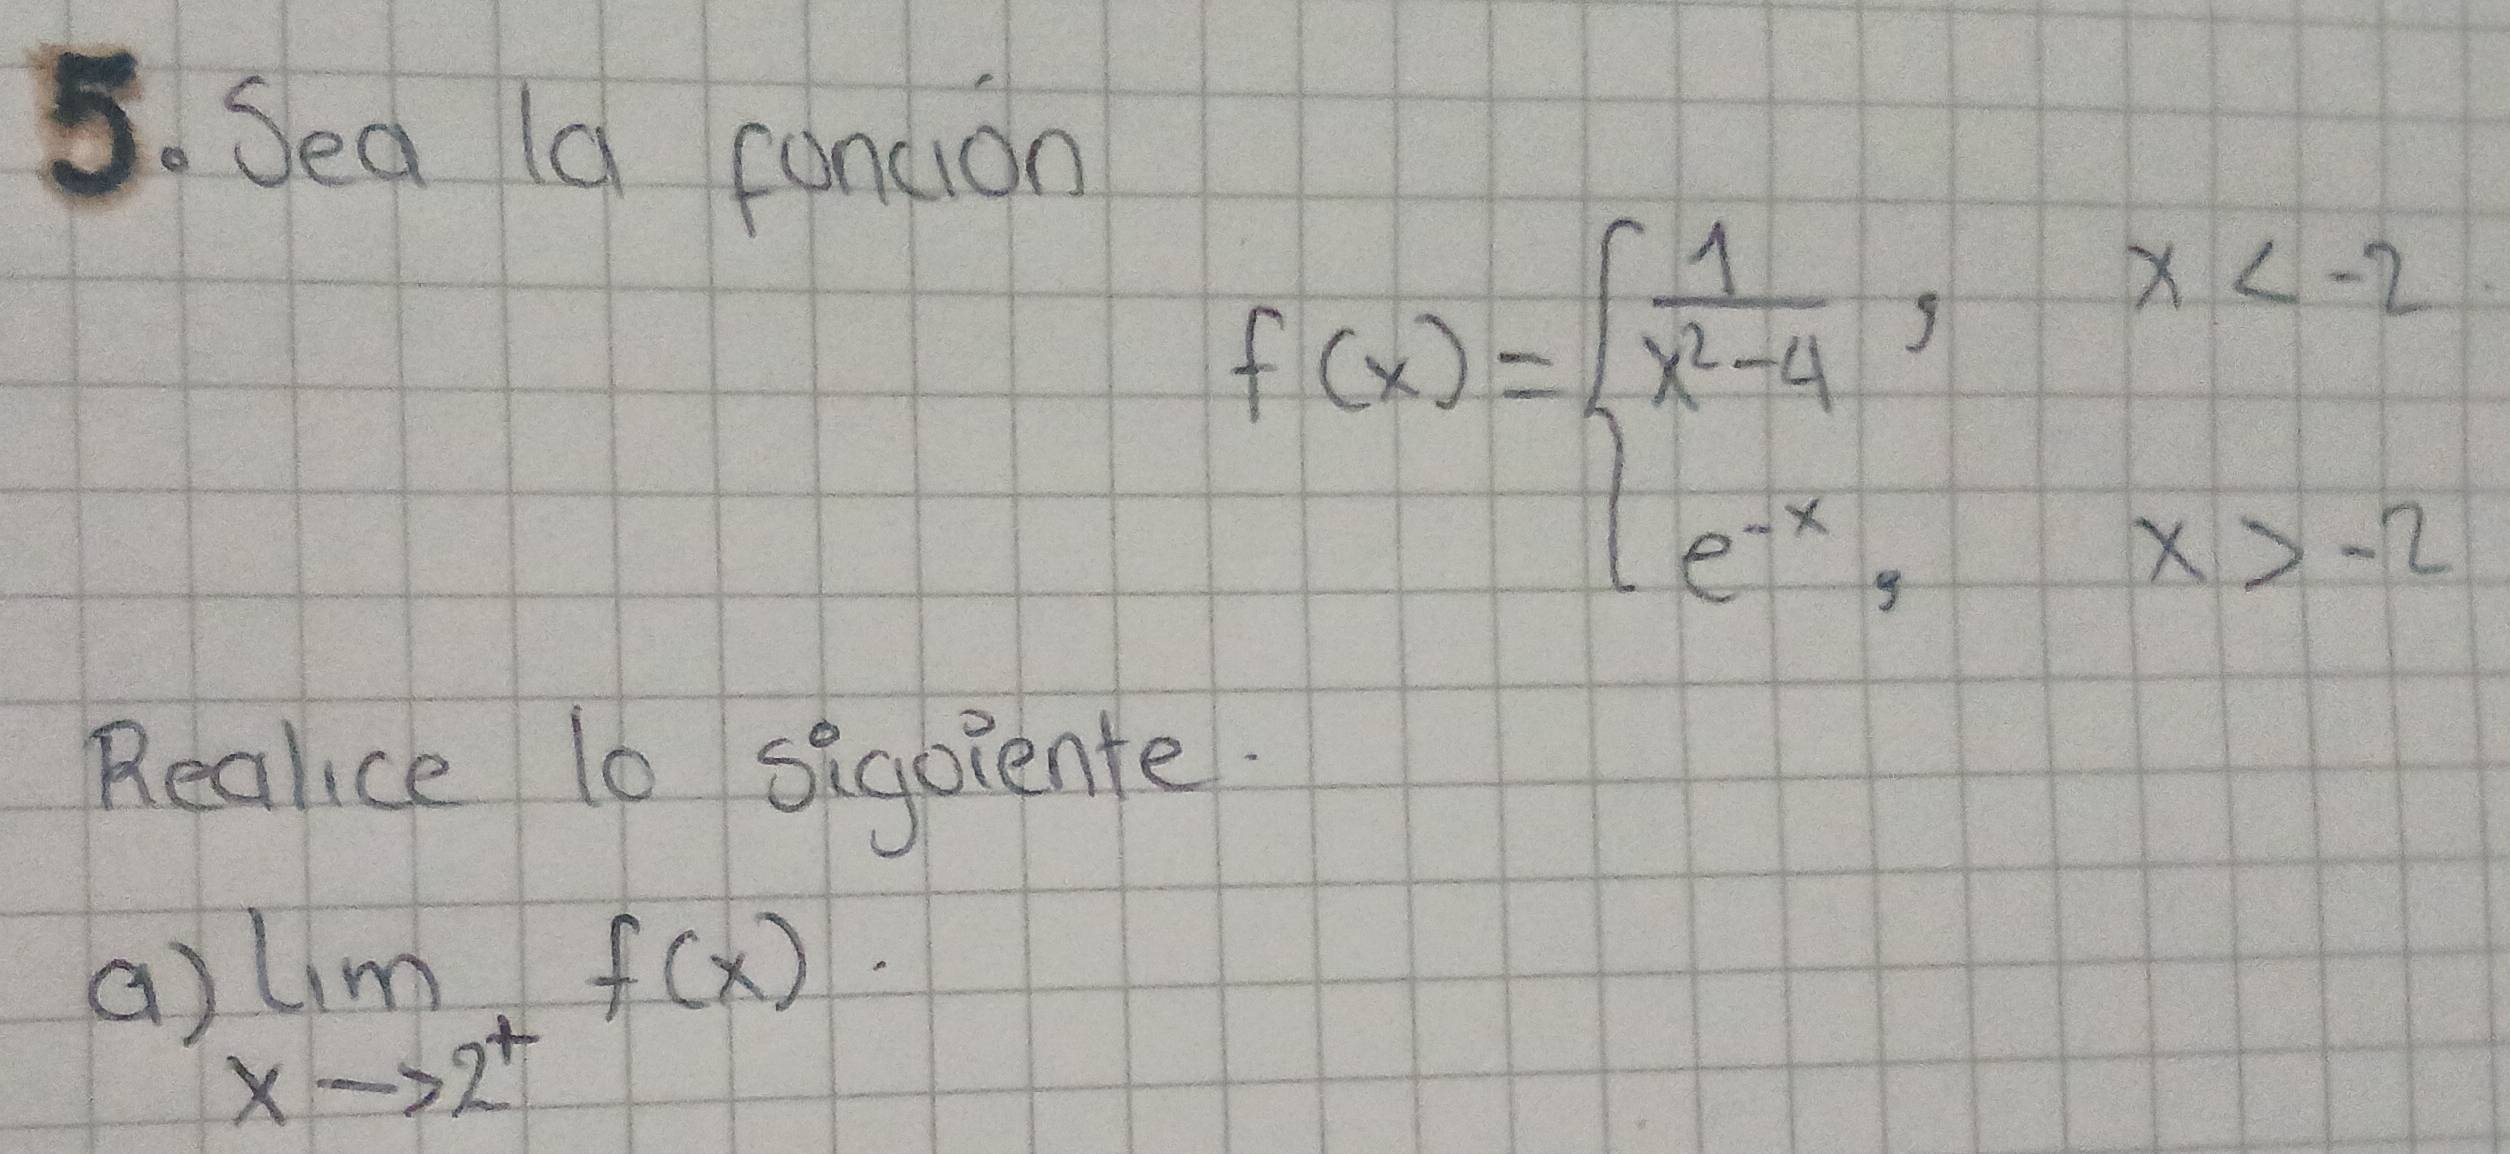 5. Sea la función
f(x) = { 1/(x² - 4) , x < -2
e^-x , x > -2
Realice lo siguiente.
a) lim f(x).
x → 2⁺